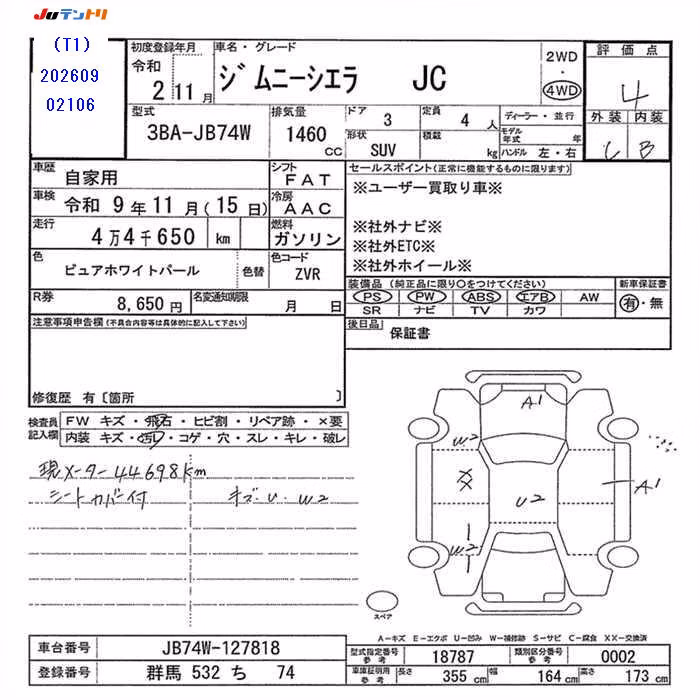 Juテントリ
(T1)
202609
02106
初度登録年月
令和
2年 11月
車名・グレード
ジムニーシエラ JC
2WD
・
4WD
評価点
4
外装 内装
C B
型式
3BA-JB74W
排気量
1460 CC
ドア
3
形状
SUV
定員
4 人
積載
kg
ディーラー・並行
モデル年式 年
ハンドル 左・右
車歴
自家用
シフト
FAT
車検
令和 9年 11月 (15日)
冷房
AAC
走行
4万4千650 km
燃料
ガソリン
色
ピュアホワイトパール
色替
色コード
ZVR
R券
8,650円
名変通知期限
月 日
セールスポイント(正常に機能するものに限ります)
※ユーザー買取り車※
※社外ナビ※
※社外ETC※
※社外ホイール※
装備品 (純正品に限り○をつけてください)
PS PW ABS エアB AW
SR ナビ TV カワ
新車保証書
有・無
後日品
保証書
注意事項申告欄(不具合内容等は具体的に記入して下さい)
修復歴 有〔箇所 〕
検査員記入欄
FW キズ・飛石・ヒビ割・リペア跡・×要
内装 キズ・汚レ・コゲ・穴・スレ・キレ・破レ
現メーター44698km
シートカバー付 キズ・U・W2
A1
W2
XX
U2
A1
W2
スペア
A-キズ E-エクボ U-凹み W-補修跡 S-サビ C-腐食 XX-交換済
車台番号
JB74W-127818
登録番号
群馬 532 ち 74
型式指定番号参考
18787
類別区分番号参考
0002
車庫証明用参考
長さ 355 cm
幅 164 cm
高さ 173 cm